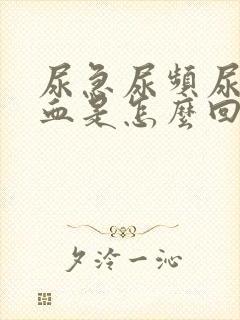 尿急尿頻尿
血是怎麼回
夕泠一沁